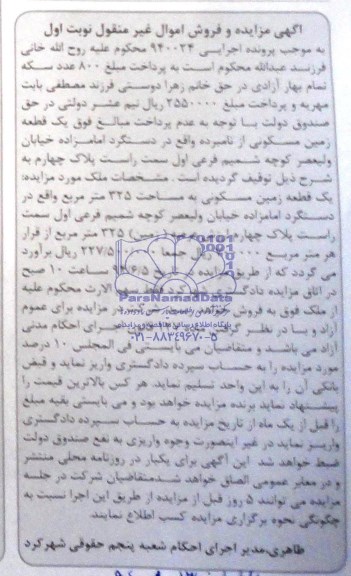 آگهی مزایده و فروش اموال غیر منقول نوبت اول
به موجب پرونده اجرایی ۹۴۰۰۲۴ محکوم علیه روح الله خانی
فرزند عبدالله محکوم است به پرداخت مبلغ ۸۰۰ عدد سکه
تمام بهار آزادی در حق خانم زهرا دوستی فرزند مصطفی بابت
مهریه و پرداخت مبلغ ۲۵۵۰۰۰۰ ریال نیم عشر دولتی در حق
صندوق دولت با توجه به عدم پرداخت مبالغ فوق یک قطعه
زمین مسکونی از نامبرده واقع در دستگرد امامزاده خیابان
ولیعصر کوچه شمیم فرعی اول سمت راست پلاک چهارم به
شرح ذیل توقیف گردیده است . مشخصات ملک مورد مزایده:
یک قطعه زمین مسکونی به مساحت ۳۲۵ متر مربع واقع در
دستگرد امامزاده خیابان ولیعصر کوچه شمیم فرعی اول سمت
راست پلاک چهارم (زمین) ۳۲۵ متر مربع از قرار
هر متر مربع ریال جمعا ۲۲۷/۵ ریال برآورد
می گردد که از طریق مزایده در ساعت ۱۰ صبح
در اتاق مزایده الارث محکوم علیه
از ملک فوق به فروش مزایده برای عموم
آزاد و با در نظر گرفتن اجرای احکام مدنی
آزاد می باشد و متقاضیان می بایستی فی المجلس ۱۰ درصد
مورد مزایده را به حساب سپرده دادگستری واریز نماید و قبض
بانکی آن را به این واحد تسلیم نماید. هر کس بالاترین قیمت را
پیشنهاد نماید برنده مزایده خواهد بود و می بایستی بقیه مبلغ
را قبل از یک ماه از تاریخ مزایده به حساب سپرده دادگستری
واریز نماید در غیر اینصورت وجوه واریزی به نفع صندوق دولت
ضبط خواهد شد این آگهی برای یکبار در روزنامه محلی منتشر
و در معابر عمومی الصاق خواهد شد.متقاضیان شرکت در جلسه
مزایده می توانند ۵ روز قبل از مزایده از طریق این اجرا نسبت به
چگونگی نحوه برگزاری مزایده کسب اطلاع نمایند.
طاهری-مدیر اجرای احکام شعبه پنجم حقوقی شهرکرد
ParsNamadData
۰۲۱-۸۸۳۴۹۶۷۰-۵